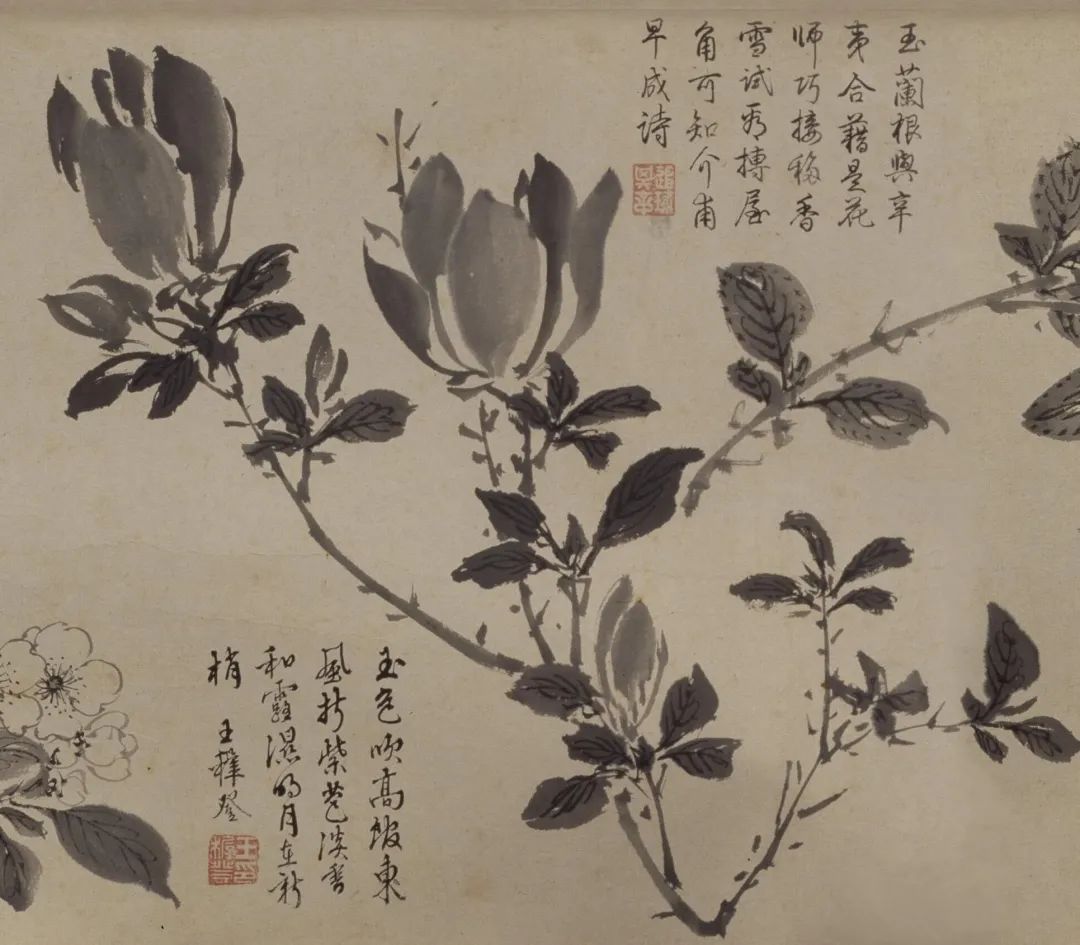 玉蘭根與辛
夷合藉是花
師巧接移香
雪試為摶屋
角可知介甫
早成詩
玉色吹高㘭東
風折紫苞淡香
和露濕明月在新
梢
王穉登